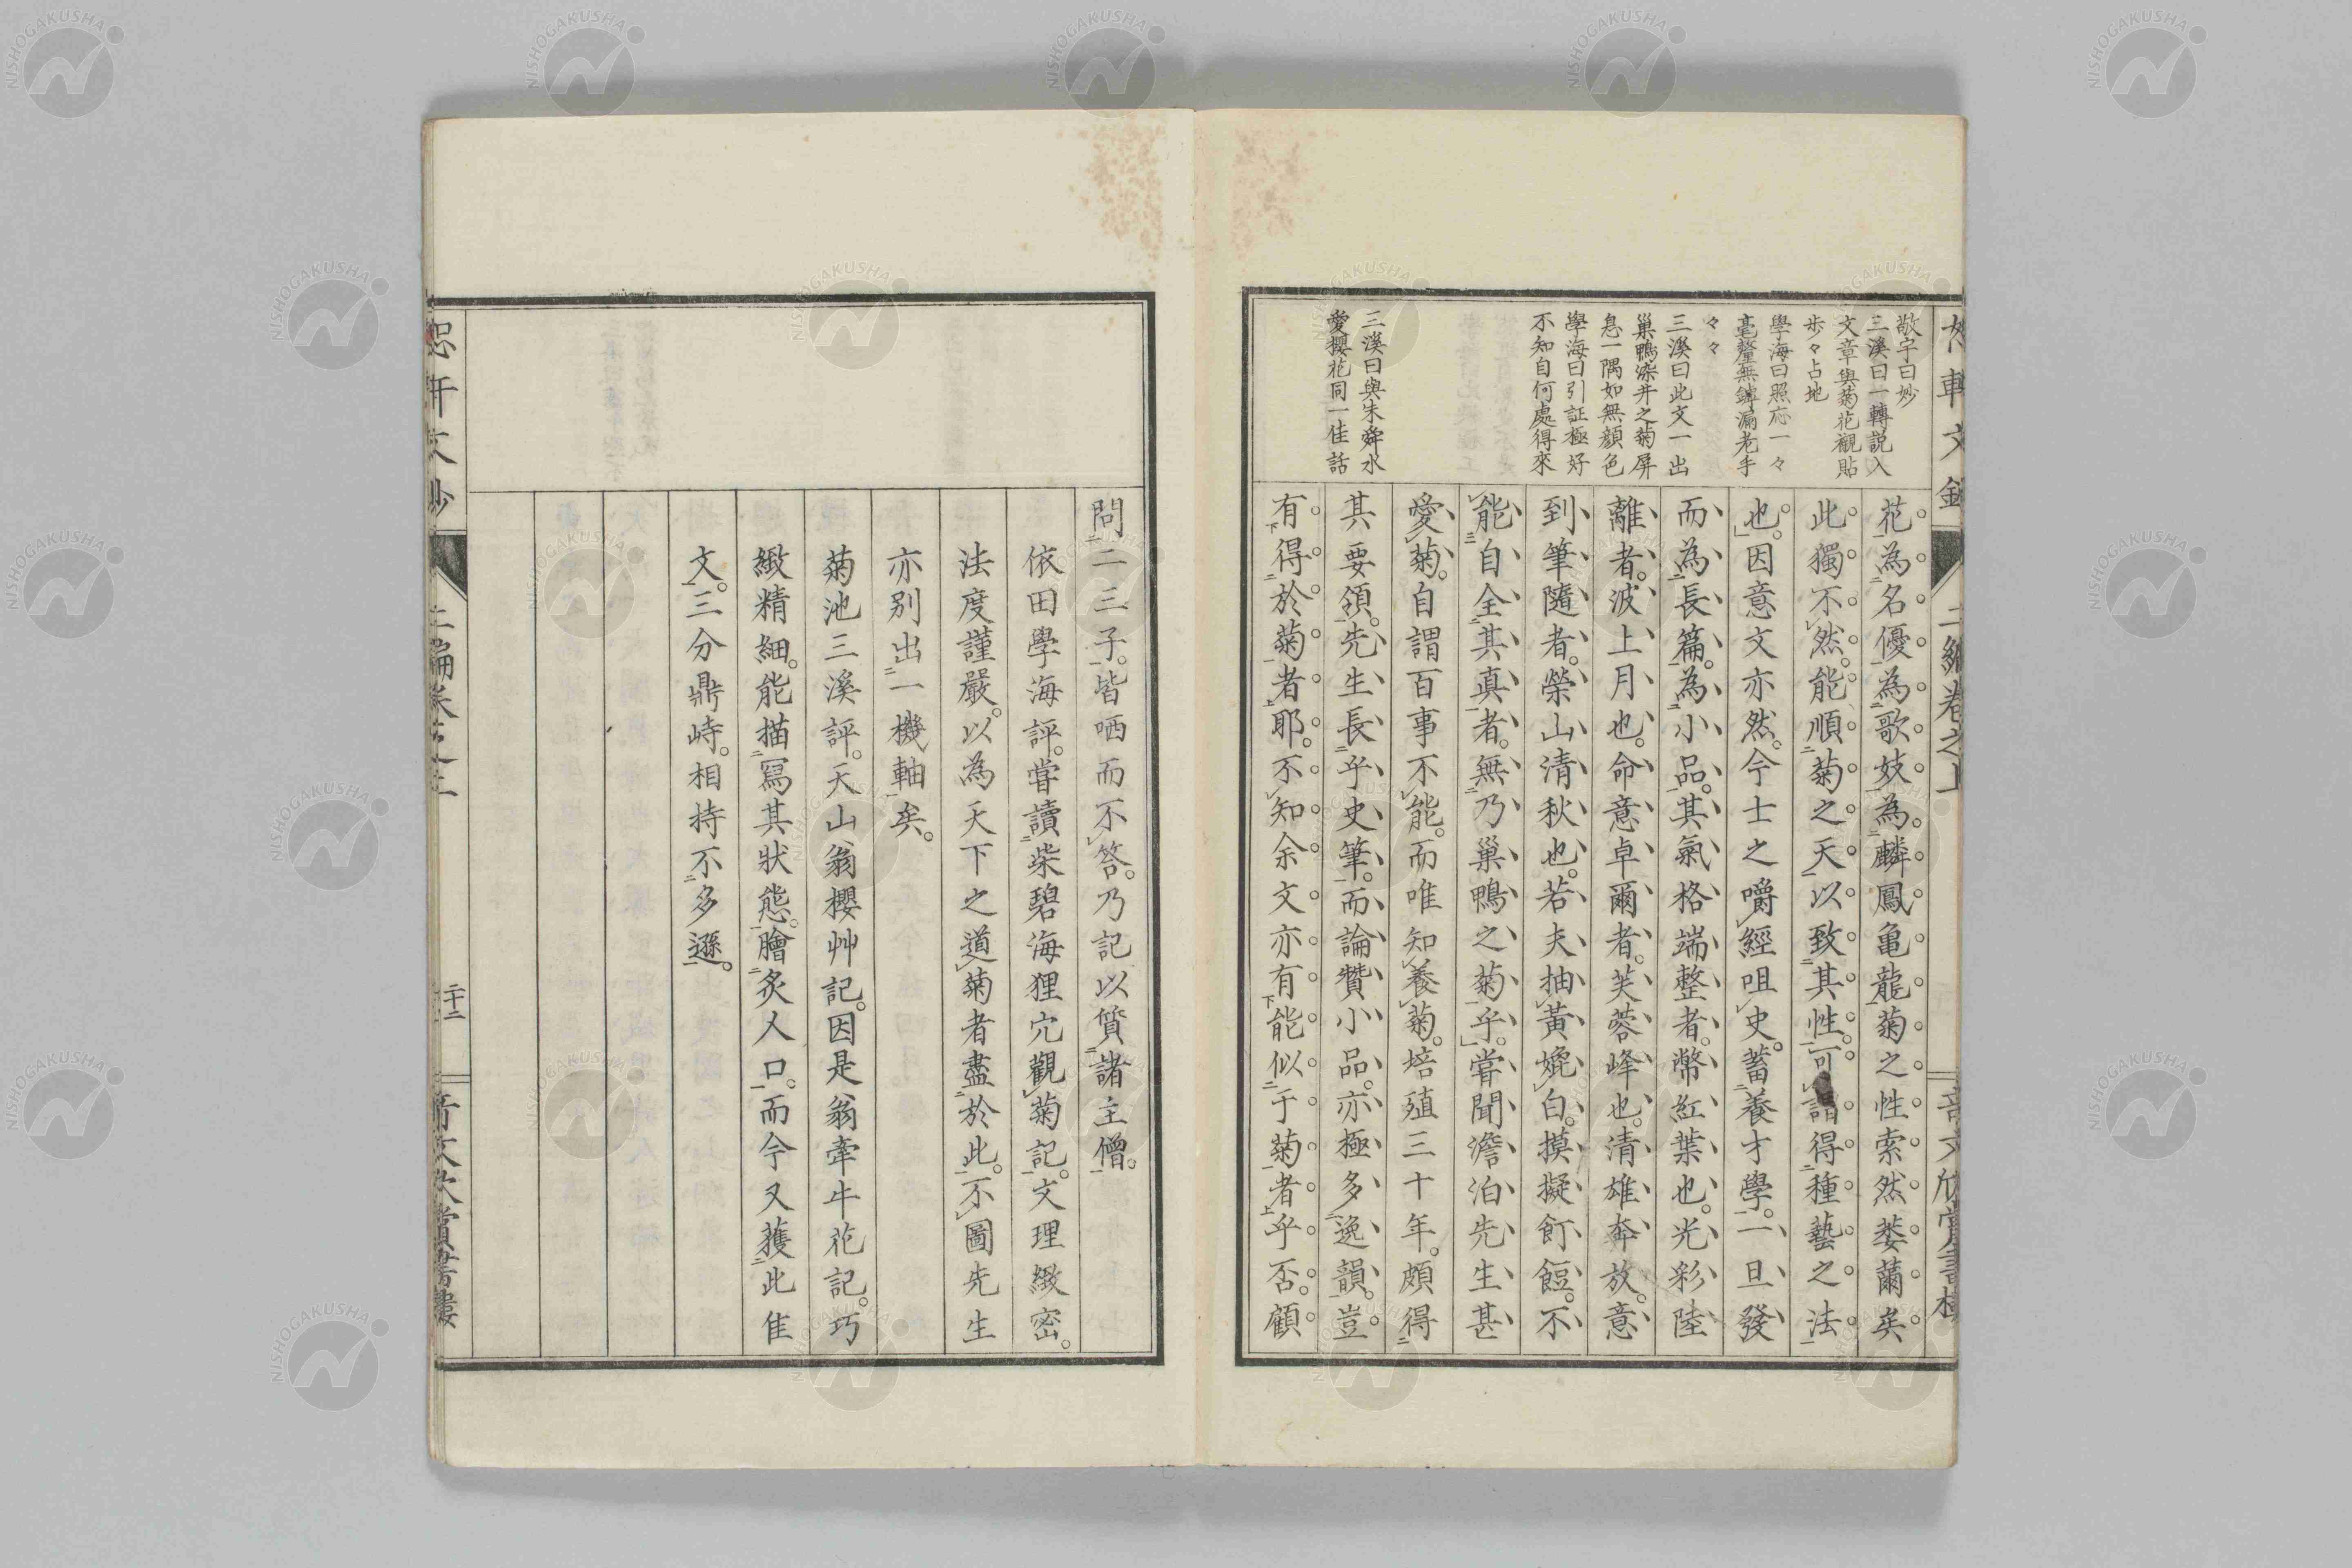 敬宇曰妙
三溪曰一轉説入
文章與菊花襯貼
歩々占地
學海曰照応一々
毫釐無罅漏老手
々々
三溪曰此文一出
巢鴨染井之菊屏
息一隅如無顔色
學海曰引証極好
不知自何處得來
三溪曰與朱舜水
愛櫻花同一佳話
花為名優為歌妓為麟鳳亀龍菊之性索然萎薾矣
此獨不然能順菊之天以致其性可謂得種藝之法
也因意文亦然今士之嚼經咀史蓄養才學一旦發
而為長篇為小品其氣格端整者幣紅葉也光彩陸
離者波上月也命意卓爾者芙蓉峰也清雄奔放意
到筆隨者榮山清秋也若夫抽黃媲白摸擬飣餖不
能自全其真者無乃巢鴨之菊乎嘗聞澹泊先生甚
愛菊自謂百事不能而唯知養菊培殖三十年頗得
其要領先生長乎史筆而論贊小品亦極多逸韻豈
有得於菊者耶不知余文亦有能似于菊者乎否顧
問二三子皆哂而不答乃記以質諸主僧
依田學海評嘗讀柴碧海狸穴觀菊記文理緻密
法度謹嚴以為天下之道菊者盡於此不圖先生
亦別出一機軸矣
菊池三溪評天山翁櫻艸記因是翁牽牛花記巧
緻精細能描寫其狀態膾炙人口而今又獲此佳
文三分鼎峙相持不多遜
二編卷之上
二十二
NISHOGAKUSHA